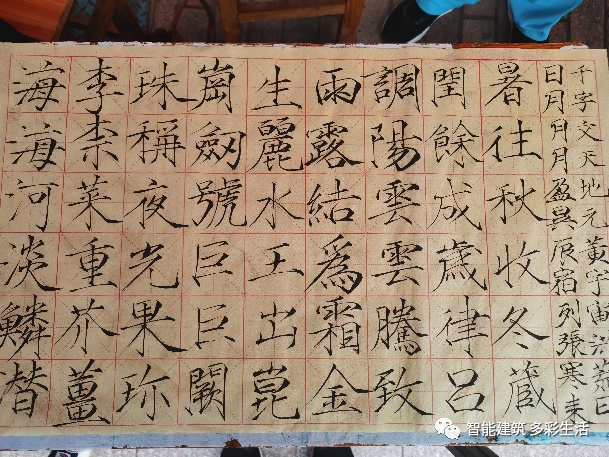 千字文天地元黃宇宙洪荒日
日月日月盈昃辰宿列張寒来
暑往秋收冬藏
閏餘成歲律呂
調陽雲雲騰致
雨露結爲霜金
生麗水王出崑
崗劒號巨巨闕
珠稱夜光果珍
李柰菜重芥薑
海海河淡鱗替
智能建筑 多彩生活